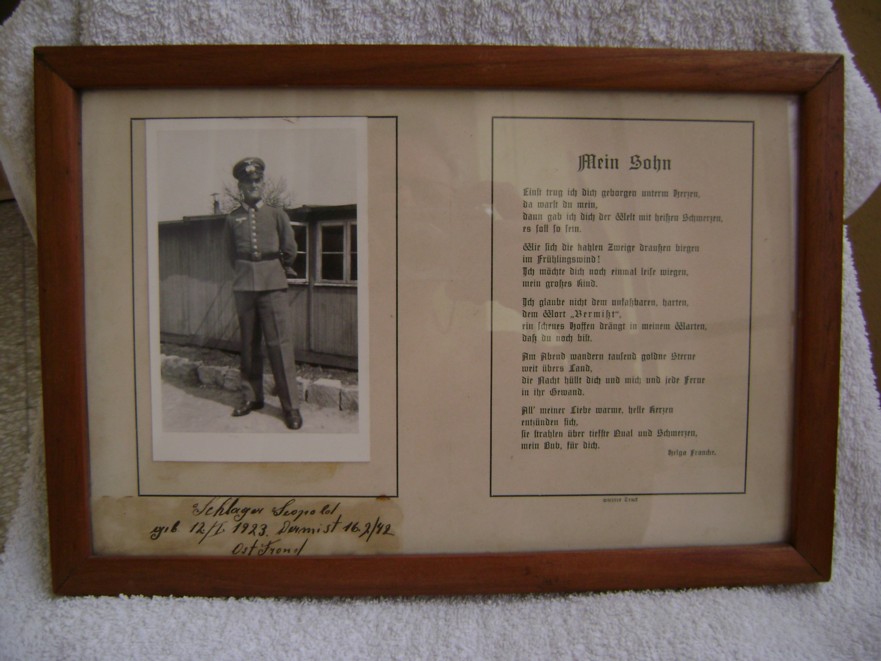 Mein Sohn
Einst trug ich dich geborgen unterm Herzen,
da warst du mein,
dann gab ich dich der Welt mit heißen Schmerzen,
es soll so sein.
Wie sich die kahlen Zweige draußen biegen
im Frühlingswind!
Ich möchte dich noch einmal leise wiegen,
mein großes Kind.
Ich glaube nicht dem unfaßbaren, harten,
dem Wort „Vermißt",
ein schenes Hoffen drängt in meinem Warten,
daß du noch bist.
Am Abend wandern tausend goldne Sterne
weit übers Land,
die Nacht hüllt dich und mich und jede Ferne
in ihr Gewand.
All' meiner Liebe warme, helle Kerzen
entzünden sich,
sie strahlen über tiefste Qual und Schmerzen,
mein Bub, für dich.
Helga Francke.
Schlager Leopold
geb 12/1. 1923. Vermist 16.2/42
Ost Front